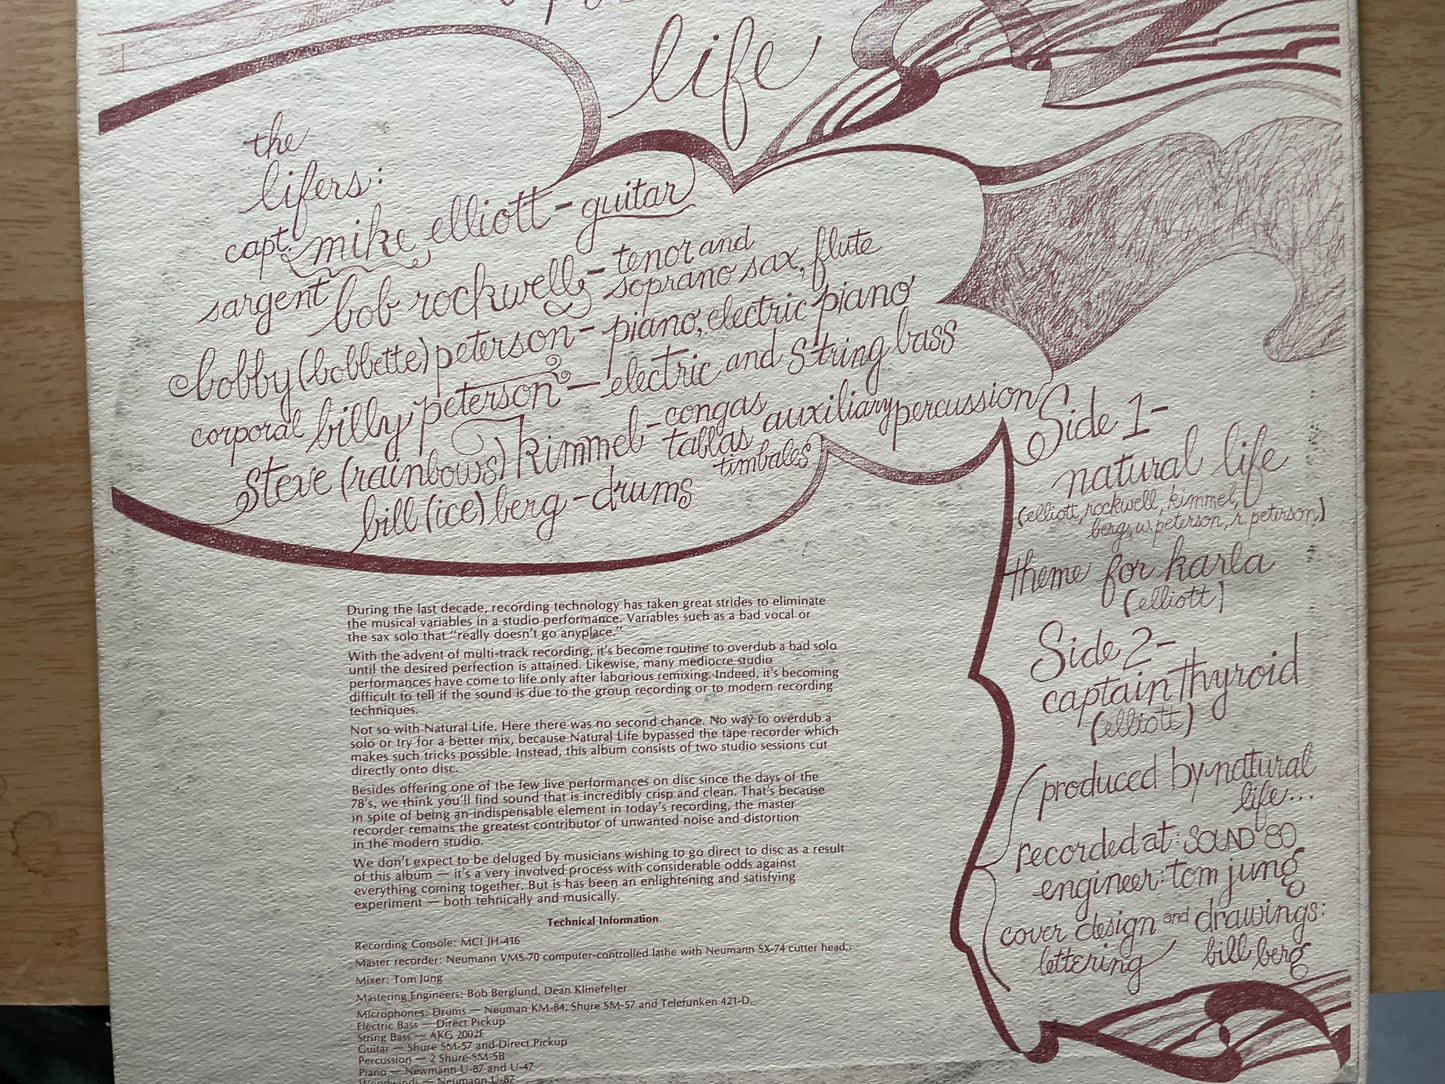 life
the
lifers:
capt. mike elliott - guitar
sargent bob rockwell - tenor and soprano sax, flute
bobby (bobbette) peterson - piano, electric piano
corporal billy peterson - electric and string bass
steve (rainbows) kimmel - congas tallas timbales auxiliary percussion
bill (ice) berg - drums
Side 1 -
natural life
(elliott, rockwell, kimmel,
berg, w. peterson, r. peterson)
theme for karla
(elliott)
Side 2 -
captain thyroid
(elliott)
produced by natural
life...
recorded at: SOUND 80
engineer: tom jung
cover design and drawings:
lettering bill berg
During the last decade, recording technology has taken great strides to eliminate
the musical variables in a studio performance. Variables such as a bad vocal or
the sax solo that "really doesn't go anyplace."
With the advent of multi-track recording, it's become routine to overdub a bad solo
until the desired perfection is attained. Likewise, many mediocre studio
performances have come to life only after laborious remixing. Indeed, it's becoming
difficult to tell if the sound is due to the group recording or to modern recording
techniques.
Not so with Natural Life. Here there was no second chance. No way to overdub a
solo or try for a better mix, because Natural Life bypassed the tape recorder which
makes such tricks possible. Instead, this album consists of two studio sessions cut
directly onto disc.
Besides offering one of the few live performances on disc since the days of the
78's, we think you'll find sound that is incredibly crisp and clean. That's because
in spite of being an indispensable element in today's recording, the master
recorder remains the greatest contributor of unwanted noise and distortion
in the modern studio.
We don't expect to be deluged by musicians wishing to go direct to disc as a result
of this album — it's a very involved process with considerable odds against
everything coming together. But is has been an enlightening and satisfying
experiment — both tehnically and musically.
Technical Information
Recording Console: MCI JH-416
Master recorder: Neumann VMS-70 computer-controlled lathe with Neumann SX-74 cutter head.
Mixer: Tom Jung
Mastering Engineers: Bob Berglund, Dean Klinefelter
Microphones: Drums — Neuman KM-84, Shure SM-57 and Telefunken 421-D.
Electric Bass — Direct Pickup
String Bass — AKG 2002E
Guitar — Shure SM-57 and Direct Pickup
Percussion — 2 Shure SM-5B
Piano — Newmann U-87 and U-47
Woodwinds — Neumann U-87